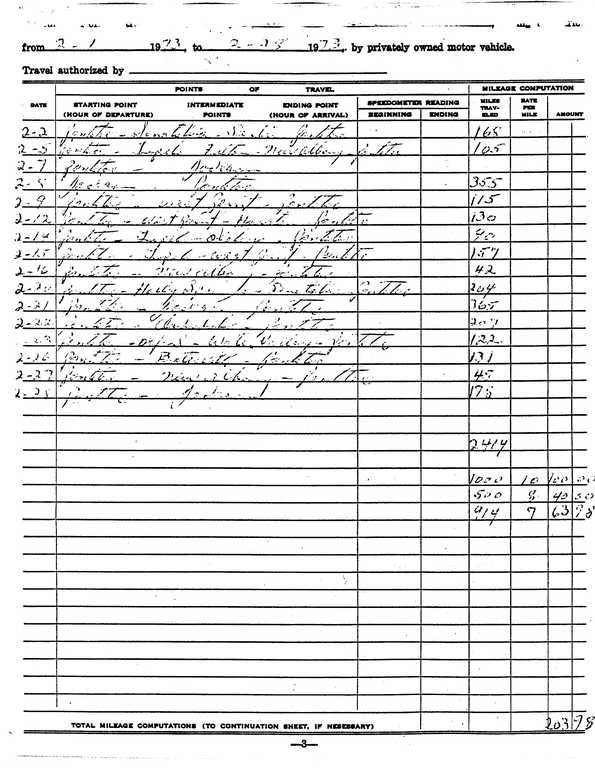 from 2-1 1973, to 2-28 1973, by privately owned motor vehicle.
Travel authorized by
POINTS OF TRAVEL MILEAGE COMPUTATION
DATE STARTING POINT (HOUR OF DEPARTURE) INTERMEDIATE POINTS ENDING POINT (HOUR OF ARRIVAL) SPEEDOMETER READING BEGINNING ENDING MILES TRAVELED RATE PER MILE AMOUNT
2-2 Pontotoc - Senatobia - Pontotoc 168
2-5 Pontotoc - Tupelo Fulton - New Albany - Pontotoc 105
2-7 Pontotoc - Jackson
2-8 Jackson - Pontotoc 355
2-9 Pontotoc - West Point - Pontotoc 115
2-12 Pontotoc - West Point - Pontotoc 130
2-14 Pontotoc - Tupelo - Pontotoc 90
2-15 Pontotoc - Tupelo - West Point - Pontotoc 157
2-16 Pontotoc - New Albany - Pontotoc 42
2-20 Pontotoc - Holly Springs - Senatobia - Pontotoc 204
2-21 Pontotoc - Pontotoc 365
2-22 Pontotoc - Pontotoc 207
2-23 Pontotoc - Oxford - Water Valley - Pontotoc 122
2-26 Pontotoc - Pontotoc 131
2-27 Pontotoc - New Albany - Pontotoc 45
2-28 Pontotoc - Jackson 178
2414
1000 10 100 00
500 8 40 00
914 7 63 98
TOTAL MILEAGE COMPUTATIONS (TO CONTINUATION SHEET, IF NESESSARY) 203 98
—3—